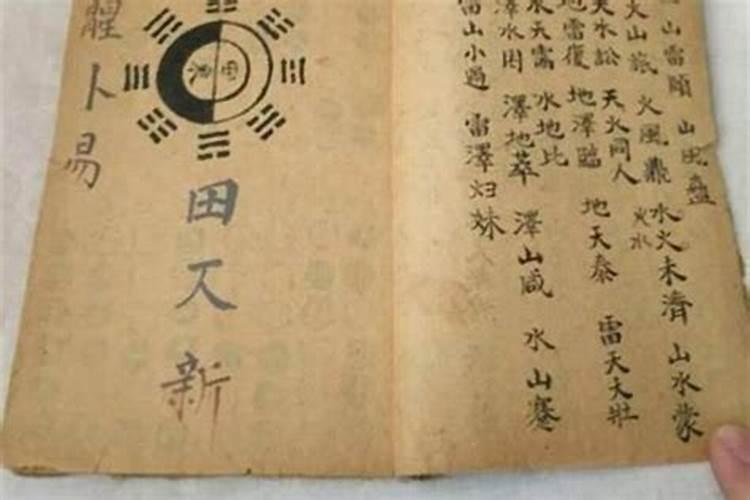 山雷頤 山風蠱
火山旅 火風鼎 水火未濟 山水蒙
火水
天水訟 天火同人
地雷復 地澤臨 地天泰 雷天大壯
水天需 水地比
澤水困 澤地萃 澤山咸 水山蹇
雷山小過 雷澤归妹
卜易
田
新